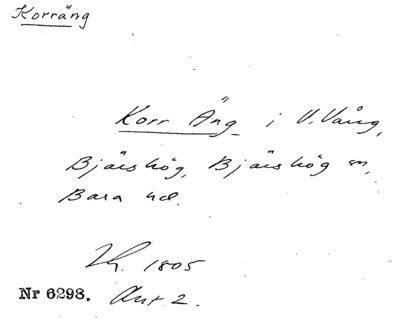 Korräng
Korr Äng i V. Vång,
Bjäishög, Bjäishög sn,
Bara hd.
1805
Nr 6298. Akt 2.